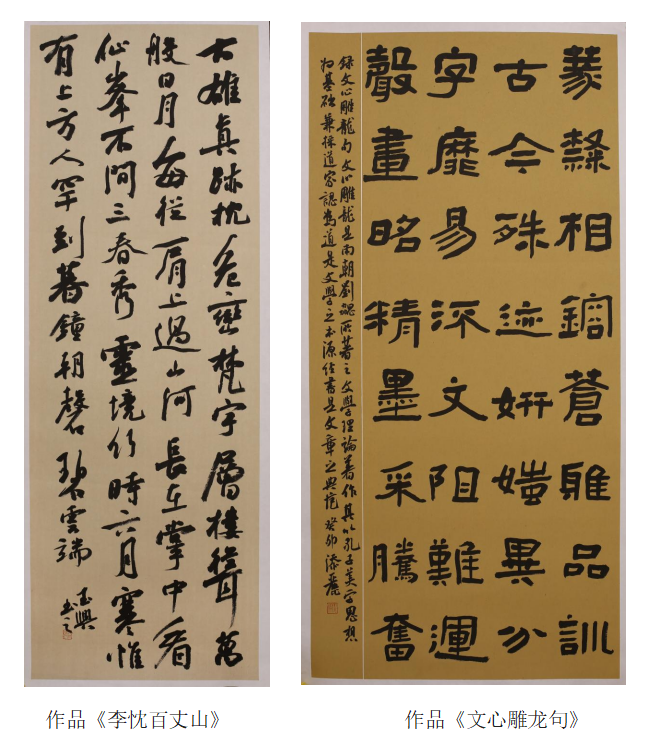 大雄真跡枕危巒梵宇層樓聳萬
般日月每從肩上過山河長在掌中看
仙峯不間三春秀靈境何時六月寒惟
有上方人罕到暮鐘朝磬碧雲端
篆隸相鎔蒼雅品訓
古今殊迹妍媸異分
字靡易流文阻難運
聲畫昭精墨采騰奮
錄文心雕龍句文心雕龍是南朝劉勰所著之文學理論著作其以孔子美學思想
為基礎兼採道家認為道是文學之本源經書是文章之典範癸卯
作品《李忱百丈山》
作品《文心雕龙句》